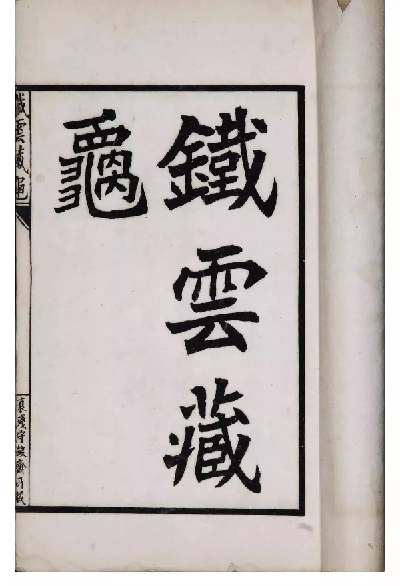 鐵雲藏
龜
鐵雲藏龜
抱殘守缺齋所藏